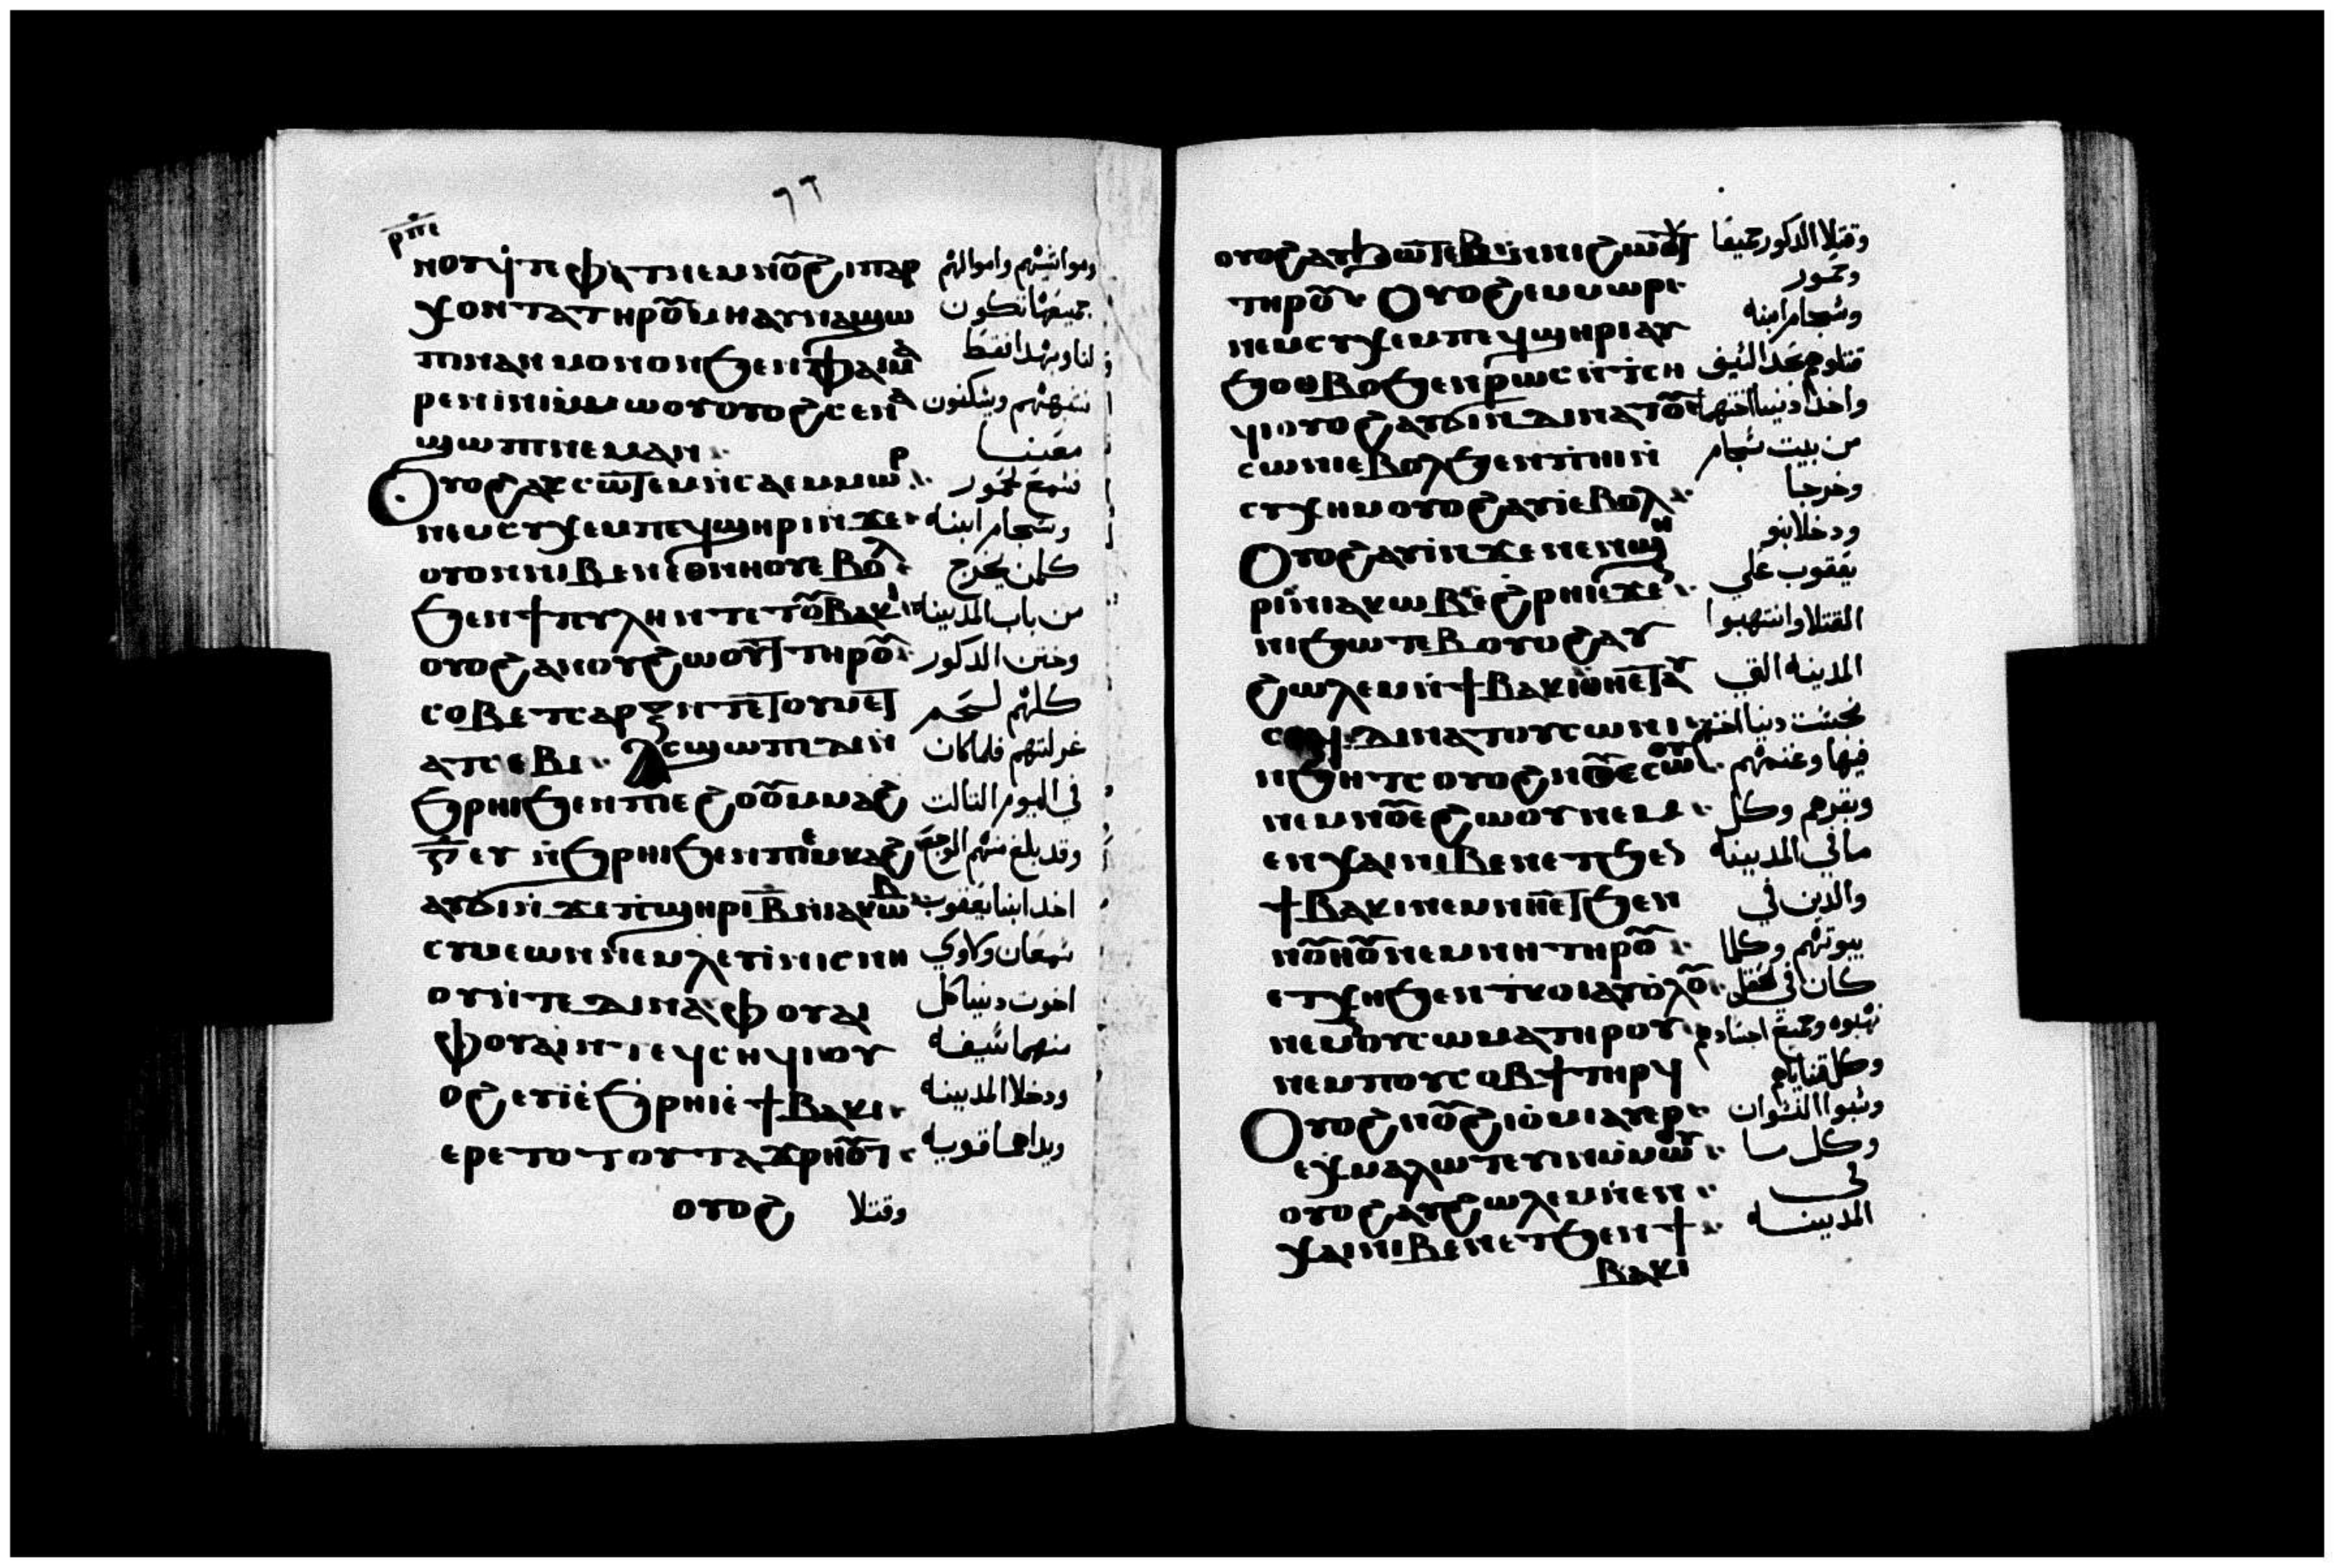 ⲣⲡⲉ
ⲛⲟⲩϥⲧⲉⲫⲁⲧⲛⲉⲙⲛⲟⲩϩⲓⲡⲁⲣ ومواشيهم واموالهم
ⲭⲟⲛⲧⲁⲧⲏⲣⲟⲩⲙⲏⲁⲩⲛⲁϣⲱ جميعها تكون
ⲡⲓⲛⲁⲛⲙⲟⲛⲟⲛϧⲉⲛⲫⲁⲓⲙⲁ لنا وبهدا فقط
ⲣⲉⲛⲓⲛⲓⲙⲙⲱⲟⲩⲟⲩⲟϩⲥⲉⲛⲁ نتبهتهم ويسكنون
ϣⲱⲡⲓⲛⲉⲙⲁⲛ معنا
Ⲟⲩⲟϩⲁⲩⲥⲱⲧⲉⲙⲛⲥⲁⲉⲙⲙⲱⲣ فسمع حمور
ⲛⲉⲙⲥⲩⲭⲉⲙⲡⲉϥϣⲏⲣⲓⲛϫⲉ وشخام ابنه
ⲟⲩⲟⲛⲛⲓⲃⲉⲛⲉⲑⲛⲏⲟⲩⲉⲃⲟⲗ كلمن يخرج
ϧⲉⲛϯⲡⲩⲗⲏⲛⲧⲉⲧⲟⲩⲃⲁⲕⲓ من باب المدينه
ⲟⲩⲟϩⲁⲛⲟⲩϩⲱⲟⲩⲧⲧⲏⲣⲟⲩ وختن الدكور
ⲥⲟⲃⲉⲧⲥⲁⲣⲝⲛⲧⲉⲧⲟⲩⲙⲉⲧ كلهم لحم
ⲁⲧⲥⲉⲃⲓ Ⲁⲥϣⲱⲡⲓⲇⲉⲛ غرلتهم فلما كان
ϧⲣⲏⲓϧⲉⲛⲡⲓⲉϩⲟⲟⲩⲙⲙⲁϩ في اليوم التالت
ⲅ ⲉⲩⲛϧⲣⲏⲓϧⲉⲛⲡⲓⲉⲙⲕⲁϩ وقد بلغ منهم الوجع
ⲁⲩϭⲓⲛϫⲉⲡϣⲏⲣⲓⲃⲛⲓⲁⲕⲱⲃ اخد ابنا يعقوب
ⲥⲩⲙⲉⲱⲛⲛⲉⲙⲗⲉⲩⲓⲛⲓⲥⲛⲏ سمعان ولاوي
ⲟⲩⲛⲧⲉⲇⲓⲛⲁⲫⲟⲩⲁⲓ اخوت دينا كل
ⲫⲟⲩⲁⲓⲛⲧⲉϥⲥⲏϥⲓⲟⲩ منهما سيفه
ⲟϩⲉⲩⲓⲉϧⲣⲏⲓⲉϯⲃⲁⲕⲓ ودخلا المدينه
ⲉⲣⲉⲧⲟⲧⲟⲩⲧⲁϫⲣⲏⲟⲩⲧ ويداهما قويه
ⲟⲩⲟϩ وقتلا
ⲟⲩⲟϩⲁⲩϧⲱⲧⲉⲃⲛⲛⲓϩⲱⲟⲩⲧ وقتلا الدكور جميعا
ⲧⲏⲣⲟⲩ Ⲟⲩⲟϩⲉⲙⲙⲱⲣ وحمور
ⲛⲉⲙⲥⲩⲭⲉⲙⲡⲉϥϣⲏⲣⲓⲁⲩ وشخام ابنه
ϧⲟⲑⲃⲟⲩϧⲉⲛⲣⲱⲥⲛⲧⲥⲏ قتلوهم بحد السيف
ϥⲓⲟⲩⲟϩⲁⲩϭⲓⲛⲇⲓⲛⲁⲧⲟⲩ واخدا دينا اختهما
ⲥⲱⲛⲓⲉⲃⲟⲗϧⲉⲛⲡⲏⲓⲛ من بيت شخام
ⲥⲩⲭⲏⲙⲟⲩⲟϩⲁⲩⲓⲉⲃⲟⲗ وخرجا
Ⲟⲩⲟϩⲁⲩⲓⲛϫⲉⲛⲉⲛϣⲏ ودخلا بنو
ⲣⲓⲛⲓⲁⲕⲱⲃⲉϩⲣⲏⲓⲉϫⲉⲛ يعقوب على
ⲛⲓϧⲱⲧⲉⲃⲟⲩⲟϩⲁⲩ القتلا وانتهبوا
ϩⲱⲗⲉⲙⲛϯⲃⲁⲕⲓⲑⲏⲉⲧⲁⲩ المدينه التي
ⲥⲱϥ ⲇⲓⲛⲁⲧⲟⲩⲥⲱⲛⲓ نجست دينا اختهم
ⲛϧⲏⲧⲥⲟⲩⲟϩⲛⲟⲩⲉⲥⲱⲟⲩ فيها وغنمهم
ⲛⲉⲙⲛⲟⲩⲉϩⲱⲟⲩⲛⲉⲙ وبقرهم وكل
ⲉⲛⲭⲁⲓⲛⲓⲃⲉⲛⲉⲧϧⲉⲛ ما في المدينه
ϯⲃⲁⲕⲓⲛⲉⲙⲛⲏⲉⲧϧⲉⲛ والدين في
ⲛⲟⲩⲏⲟⲩⲛⲉⲙⲛⲏⲧⲏⲣⲟⲩ بيوتهم وكلما
ⲉⲧⲭⲏϧⲉⲛⲧⲕⲟⲓⲁⲩⲟⲗⲟⲩ كان في الحقل
ⲛⲉⲙⲟⲩⲥⲱⲙⲁⲧⲏⲣⲟⲩ نهبوه وجميع اجسادهم
ⲛⲉⲙⲡⲟⲩⲥⲟⲃϯⲧⲏⲣϥ وكل قناياهم
Ⲟⲩⲟϩⲛⲟⲩϩⲓⲟⲙⲓⲁⲩⲉⲣ وسبوا النسوان
ⲉⲭⲙⲁⲗⲱⲧⲉⲩⲓⲛⲙⲙⲱⲟⲩ وكل ما
ⲟⲩⲟϩⲁⲩϩⲱⲗⲉⲙⲛⲉⲛ في
ⲭⲁⲓⲛⲓⲃⲉⲛⲉⲧϧⲉⲛϯ المدينه
ⲃⲁⲕⲓ